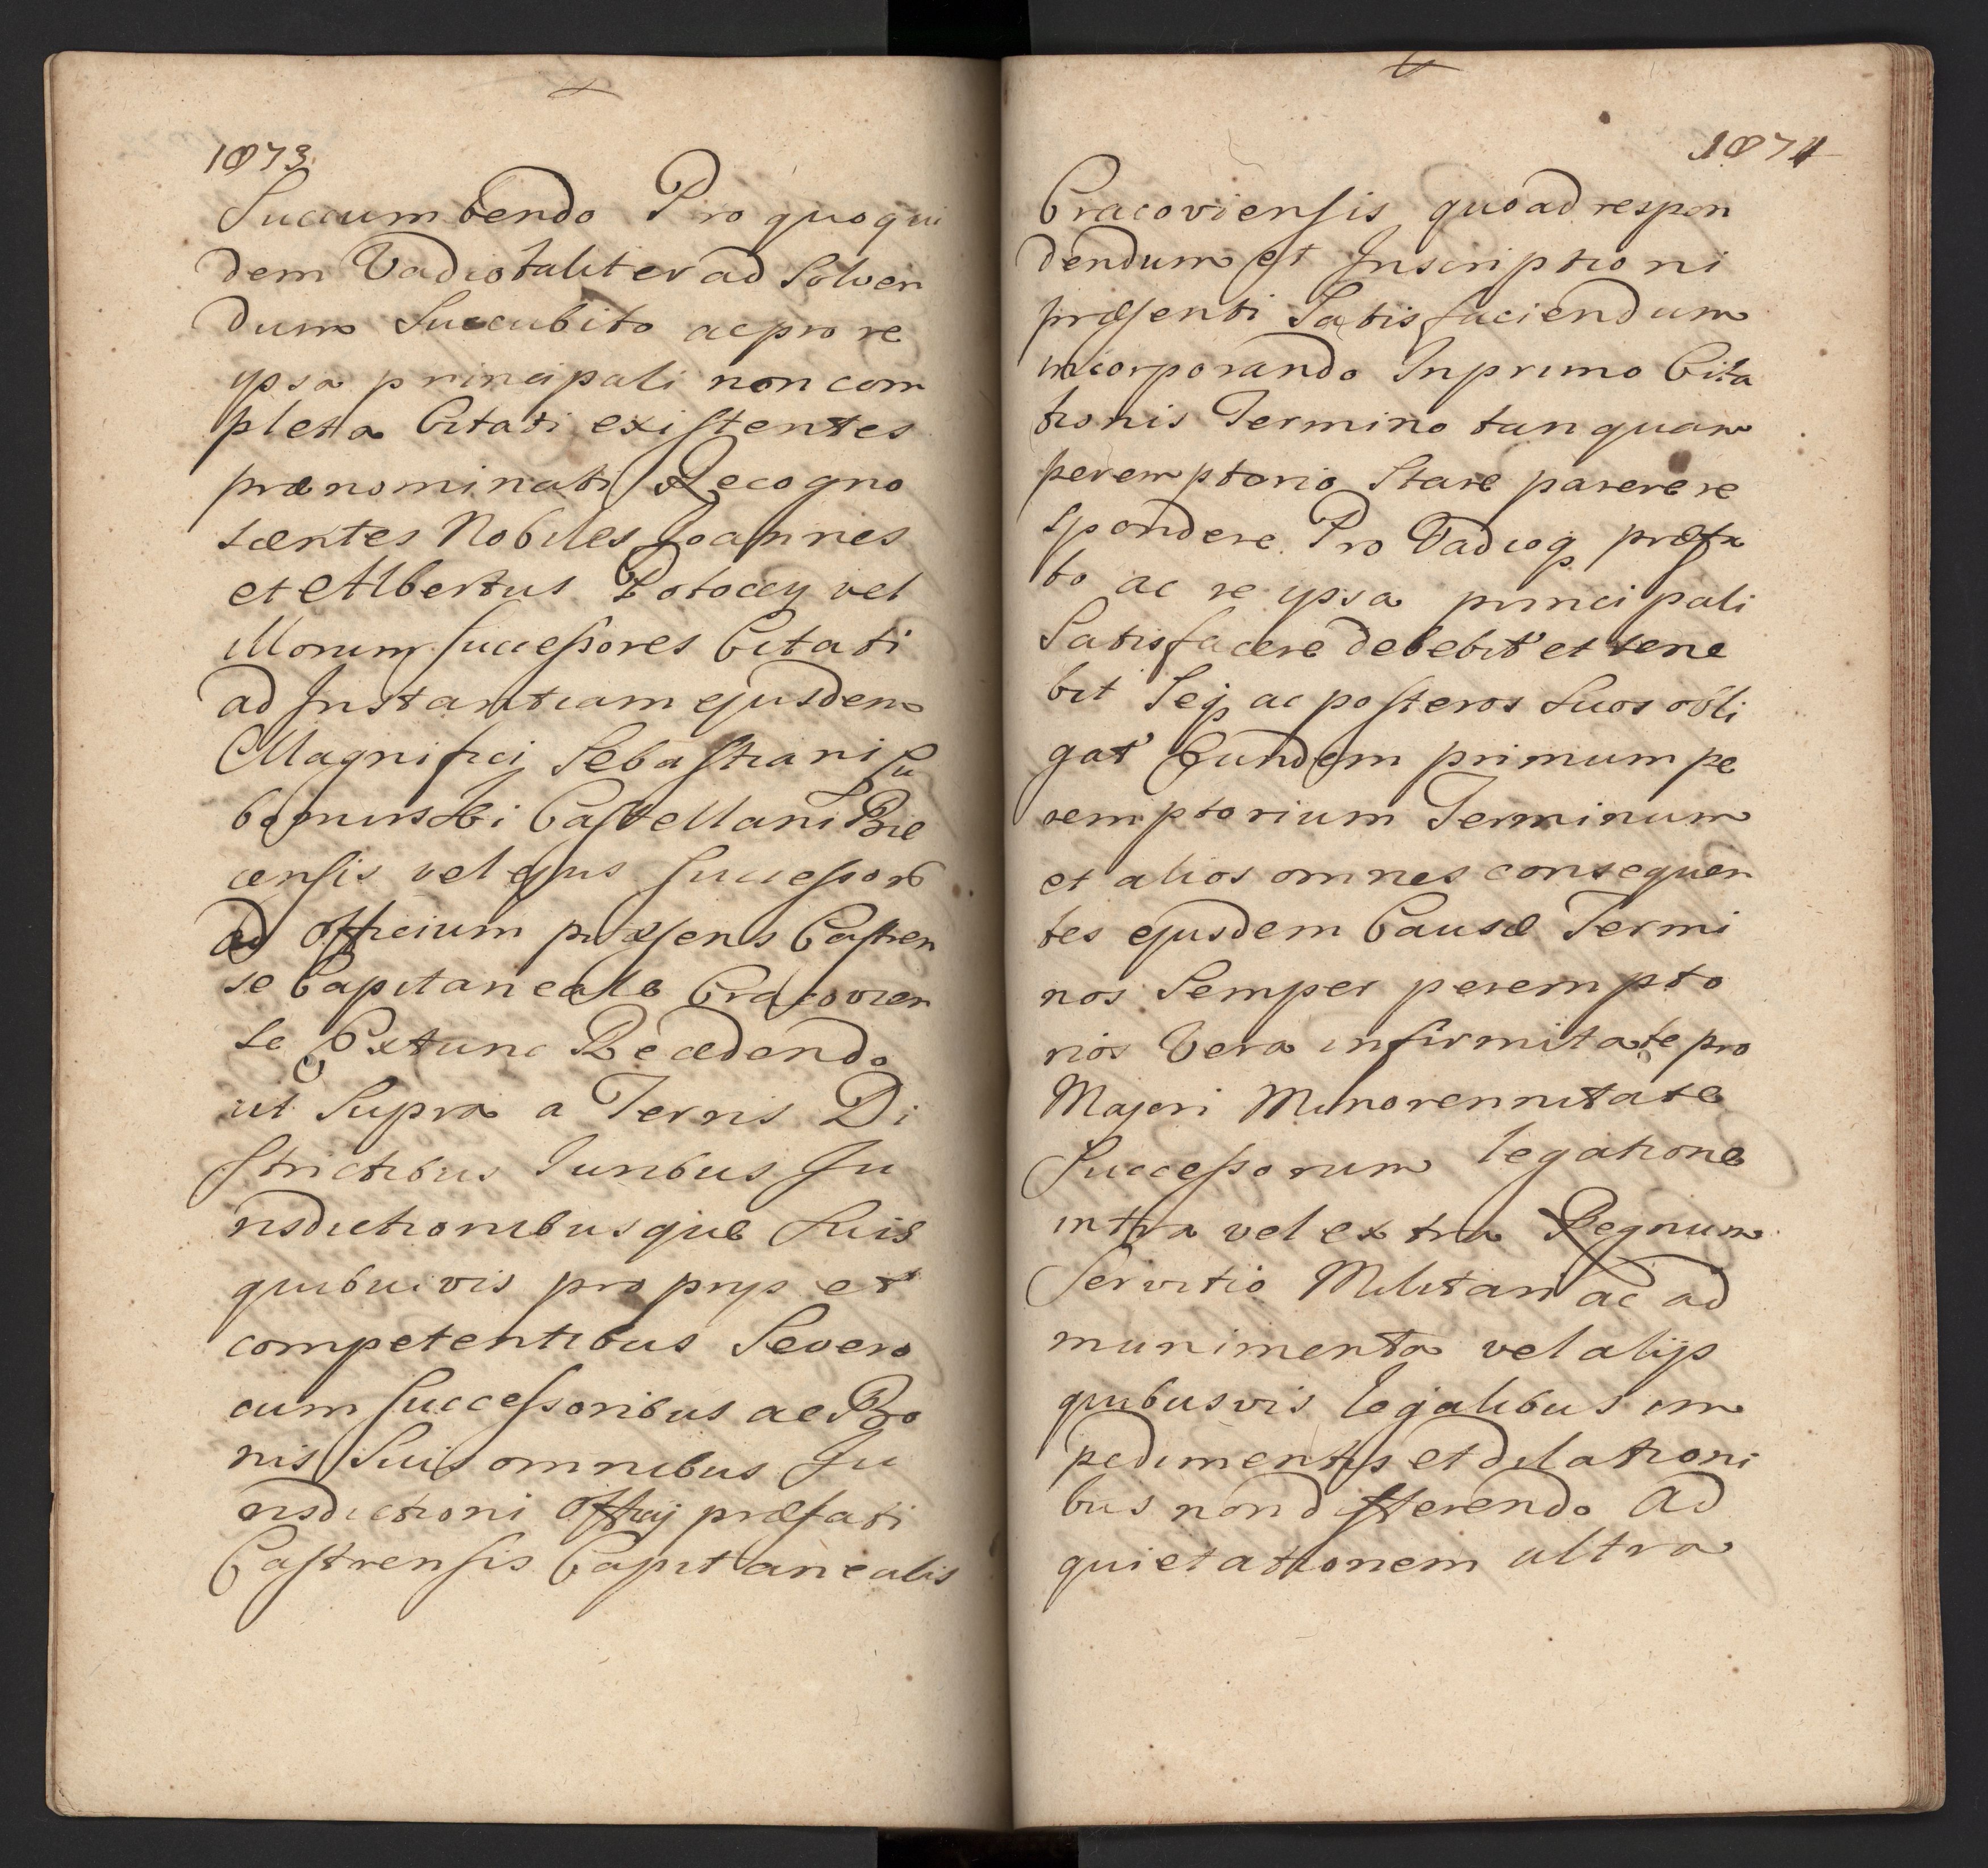 1073.
Succumbendo Pro quo qui
dem Vadio taliter ad Solven
dum Succubito ac pro re
ipsa principali non com
pleta Citati existentes
prænominati Recogno
scentes Nobiles Joannes
et Albertus Potoccy vel
illorum successores Citati
ad Instantiam ejusdem
Magnifici Sebastiani Lu
bomirski Castellani Bie
censis vel ejus successorũ
ad Officium præsens Castren
se Capitaneale Cracovien
se Extunc Recedendo
ut Supra a Terris Di
strictibus Juribus Ju
risdictionibusque suis
quibusvis proprijs et
competentibus Se vero
cum successoribus ac Bo
nis Suis omnibus Ju
risdictioni Officij præfati
Castrensis Capitanealis
1074
Cracoviensis quo ad respon
dendum et Inscriptioni
præsenti Satisfaciendum
incorporando In primo Cita
tionis Termino tanquam
peremptorio Stare parere re
spondere Pro Vadioq præfa
to ac re ipsa principali
Satisfacere debebit et tene
bit Seq ac posteros Suos obli
gat Eundem primum pe
remptorium Terminum
et alios omnes consequen
tes ejusdem Causæ Termi
nos Semper perempto
rios Vera infirmitate pro
Majori Minorennitate
Successorum legatione
intra vel extra Regnum
Servitio Militari ac ad
munimenta vel alijs
quibusvis legalibus im
pedimentis et dilationi
bus non differendo Ad
quietationem ultra